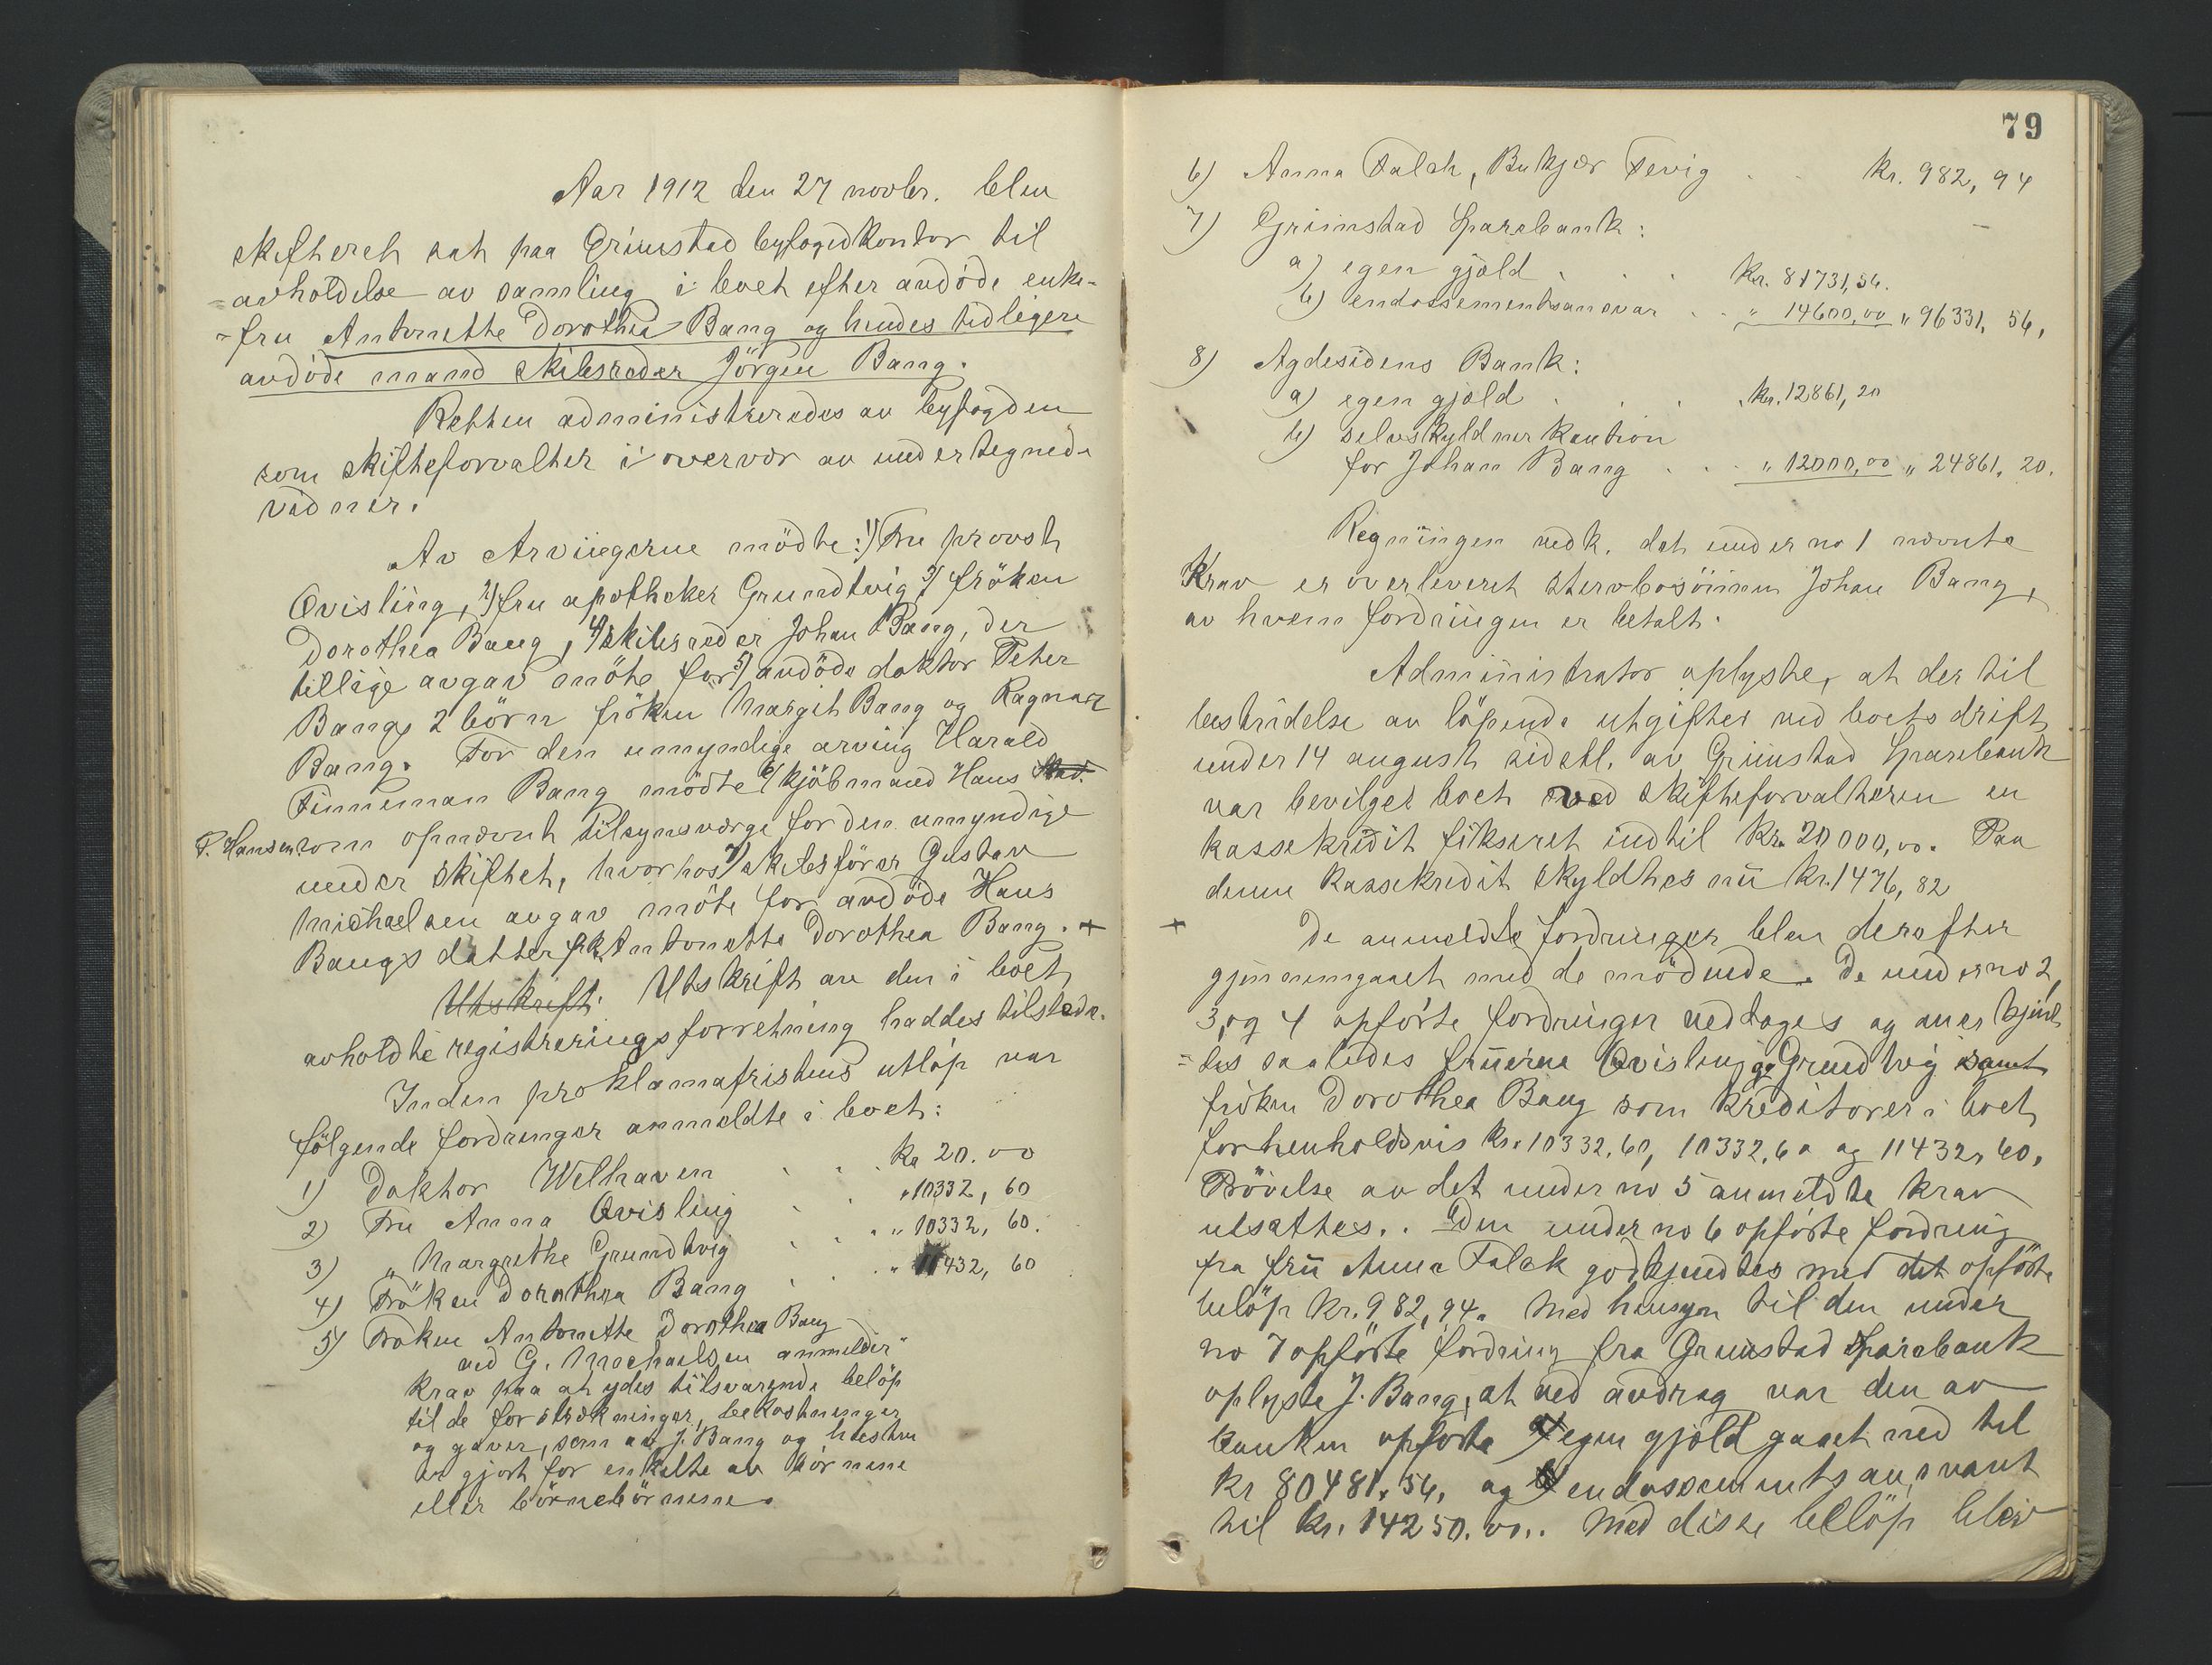 Aar 1912 den 27 novbr. blev
skifteret sat paa Grimstad byfogedkontor til
=avholdelse av samling i boet efter avdøde enke-
=fru Antonette Dorothea Bang og hendes tidligere
avdøde mand skibsreder Jörgen Bang.
Retten administreredes av byfogden
som skifteforvalter i overvær av undertegnede
vidner.
Av Arvingerne mödte: 1) Fru provst
Qvisling, 2) fru apotheker Grundtvig, 3) fröken
Dorothea Bang, 4) skibsreder Johan Bang, der
tillige avgav möte for 5) avdöde doktor Peter
Bangs 2 börn fröken Margit Bang og Ragnar
Bang. For den umyndige arving Harald
Finneman Bang mödte 6) kjöbmand Hans
P. Hansen som opnævnt tilsynsværge for den umyndige
under skiftet, hvorhos 7) skibsförer Gustav
Michaelsen avgav möte for avdöde Hans
Bangs datter frk Antonette Dorothea Bang. +
Utskrift. Utskrift av den i boet
avholdte registreringsforretning haddes tilstede.
Inden proklamafristens utlöp var
fölgende fordringer anmeldte i boet:
1) Doktor Welhaven . . . Kr 20.00
2) Fru Anna Qvisling . . " 10332, 60
3) " Margrethe Grundtvig . . " 10332, 60.
4) Fröken Dorothea Bang . . . " 11432, 60
5) Fröken Antonette Dorothea Bang
ved G. Michaelsen anmelder
krav paa at ydes tilsvarende belöp
til de forstrækninger, bekostninger
og gaver, som av J. Bang og hustru
er gjort for enkelte av börnene
eller börnebörnene.
79
6) Anna Falch, Bukjær Fevig . . Kr. 982, 94
7) Grimstad Sparebank:
a) egen gjæld . . . Kr. 81731,56.
b) endossementsansvar . . " 14600,00 " 96331, 56,
8) Agdesidens Bank:
a) egen gjæld . . . Kr. 12861, 20
b) selvskyldnerkaution
for Johan Bang . . . " 12000,00 " 24861, 20.
Regningen vedk. det under no 1 nævnte
Krav er overleveret stervbosönnen Johan Bang,
av hvem fordringen er betalt.
Administrator oplyste, at der til
bestridelse av löpende utgifter ved boets drift
under 14 august sidstl. av Grimstad Sparebank
var bevilget boet ved skifteforvalteren en
kassekredit fikseret indtil Kr. 20000,00. Paa
denne kassekredit skyldtes nu Kr. 1476, 82
+ De anmeldte fordringer blev derefter
gjennemgaaet med de mödende. De under no 2,
3, og 4 opförte fordringer vedtoges og anerkjend=
=tes saaledes fruerne Qvisling og Grundtvig samt
fröken Dorothea Bang som kreditorer i boet
forhenholdsvis Kr. 10332,60, 10332,60 og 11432,60.
Prövelse av det under no 5 anmeldte krav
utsattes. . Den under no 6 opförte fordring
fra fru Anna Falck godkjendtes med det opförte
belöp Kr. 982,94. Med hensyn til den under
no 7 opförte fordring fra Grimstad Sparebank
oplyste J. Bang, at ved avdrag var den av
banken opförte a) egen gjæld gaaet ned til
Kr 80481,56, og b) endossementsansvaret
til Kr. 14250.00.. Med disse belöp blev